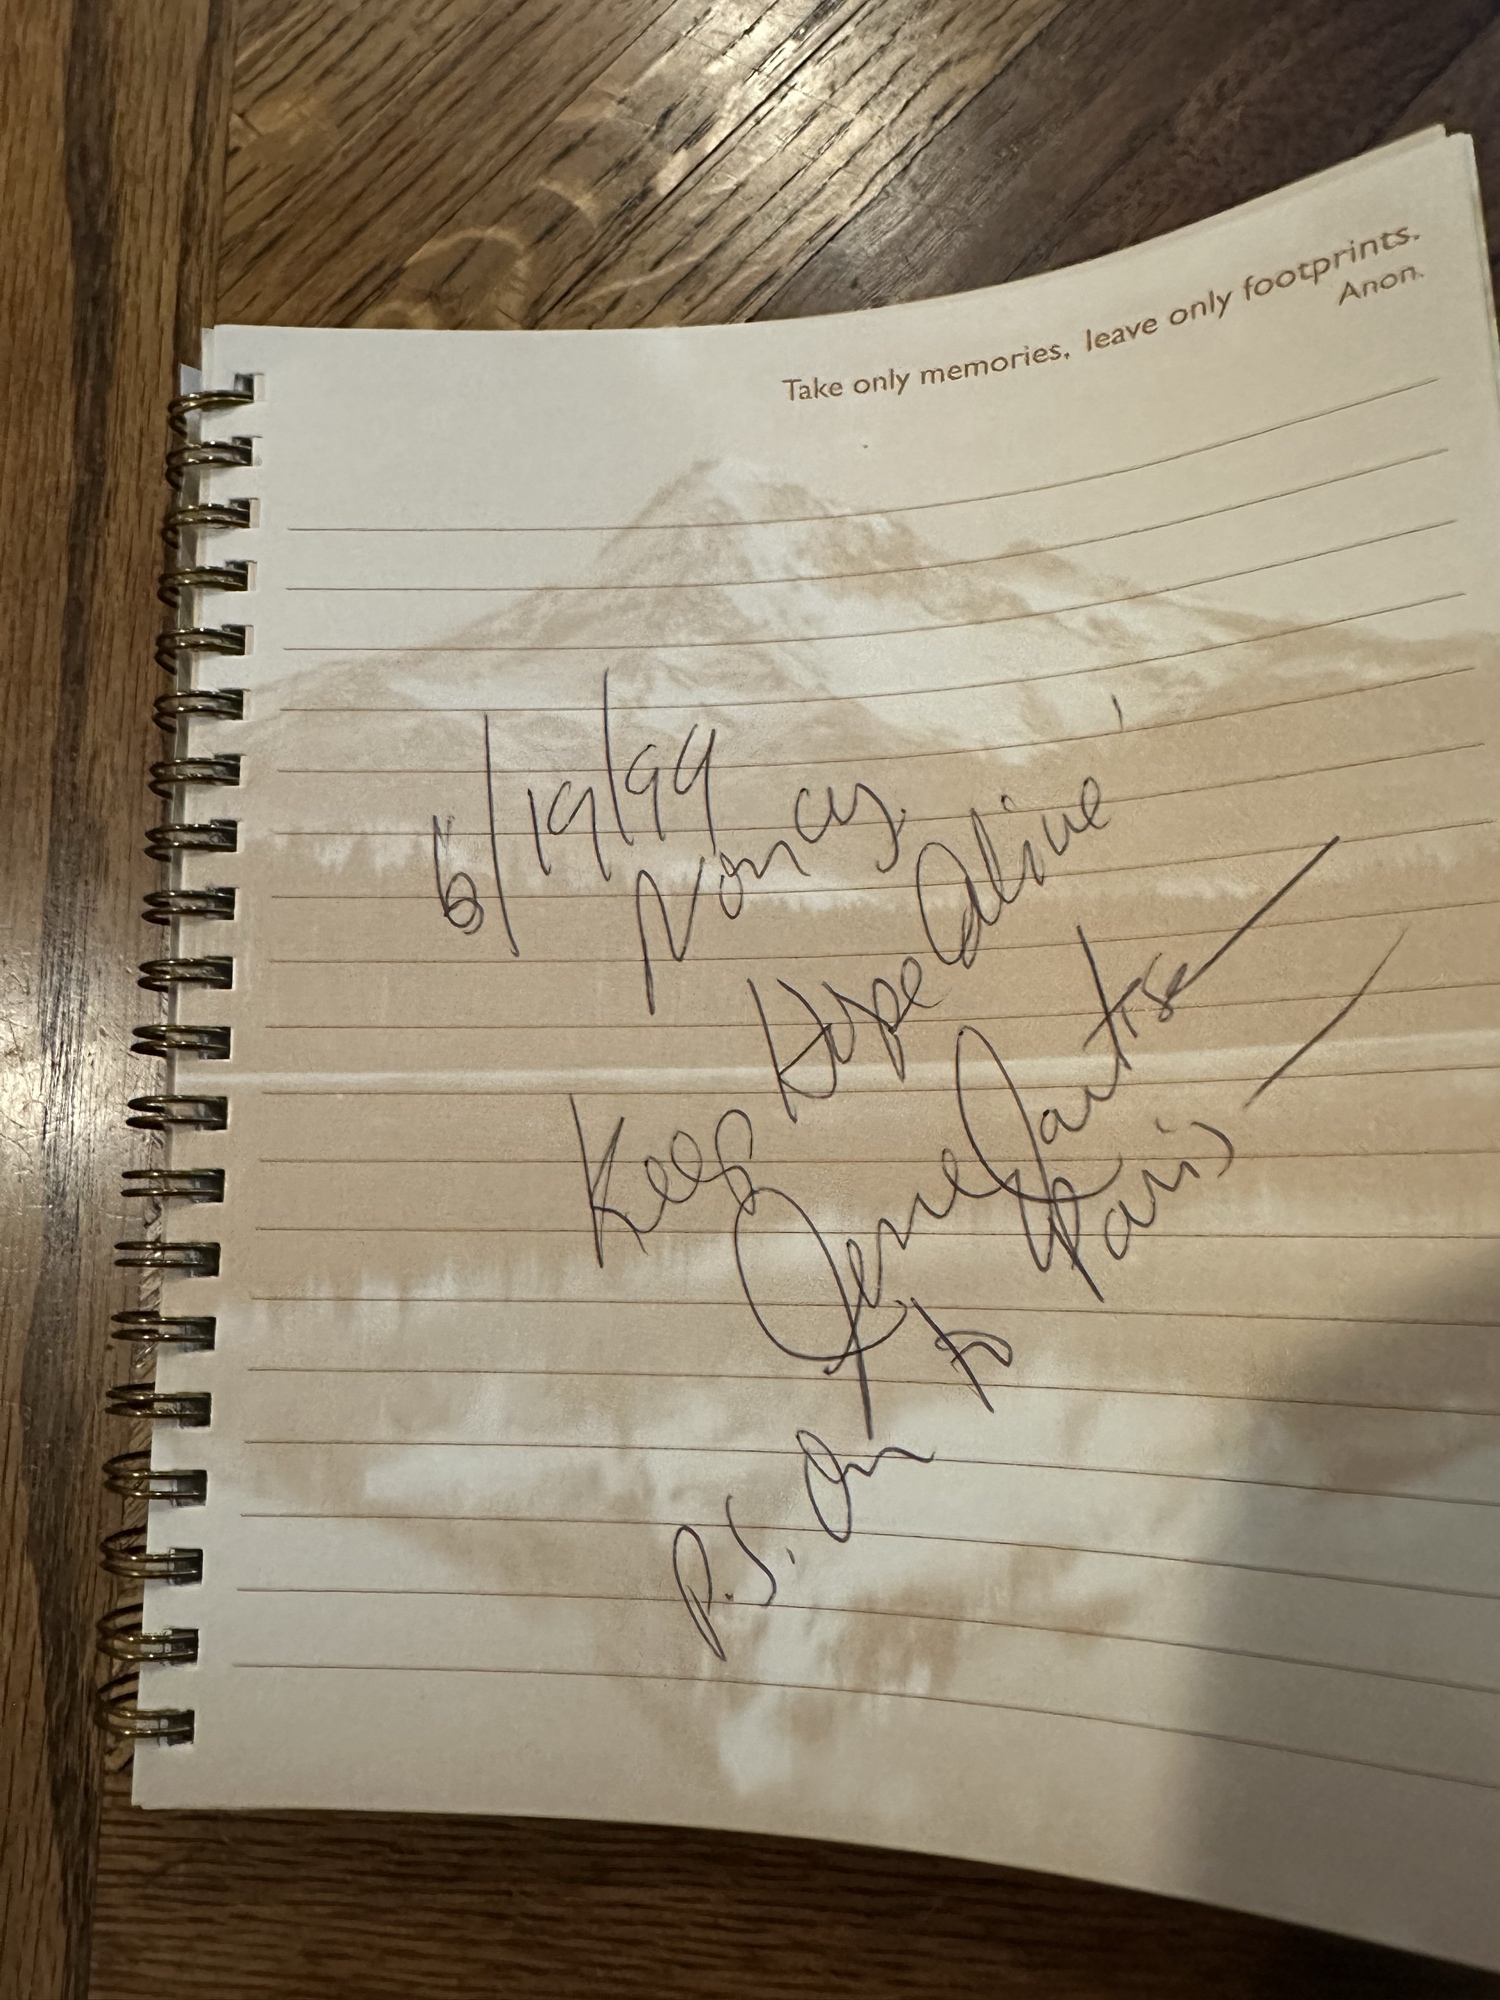 Take only memories, leave only footprints.
Anon.
6/19/99
Nancy,
Keep Hope Alive'
Jesse Jackson
P.S. On to Paris